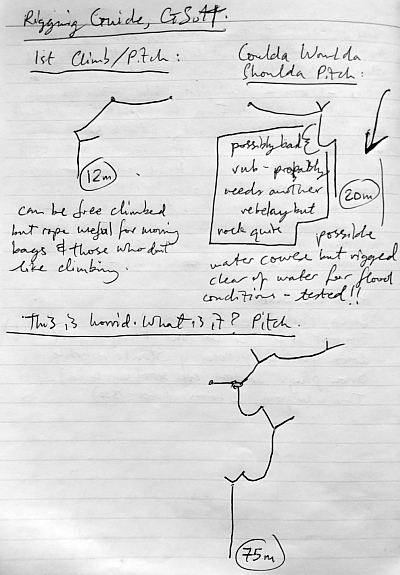 Rigging Guide, GSoH.
1st Climb/Pitch :
12m
can be free climbed
but rope useful for moving
bags & those who don't
like climbing.
Coulda Woulda
Shoulda Pitch :
possibly bad
rub - probably
needs another
rebelay but
rock quite
20m
possible
water course but rigged
clear of water for flood
conditions - tested!!
This is horrid. What is it? Pitch.
75m